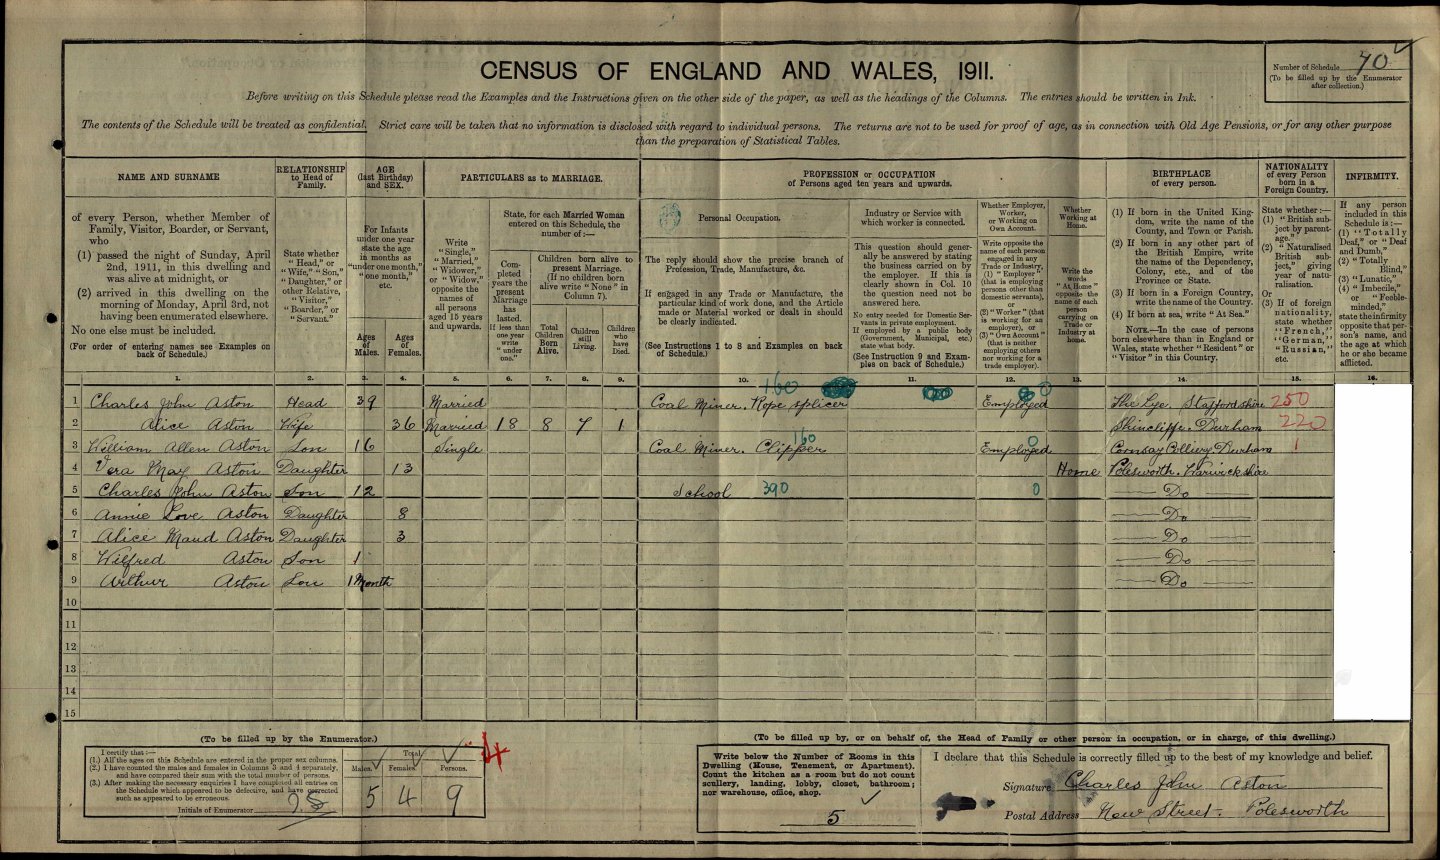 CENSUS OF ENGLAND AND WALES, 1911.
Number of Schedule 70
(To be filled up by the Enumerator
after collection.)
Before writing on this Schedule please read the Examples and the Instructions given on the other side of the paper, as well as the headings of the Columns. The entries should be written in Ink.
The contents of the Schedule will be treated as confidential. Strict care will be taken that no information is disclosed with regard to individual persons. The returns are not to be used for proof of age, as in connection with Old Age Pensions, or for any other purpose
than the preparation of Statistical Tables.
NAME AND SURNAME
of every Person, whether Member of
Family, Visitor, Boarder, or Servant,
who
(1) passed the night of Sunday, April
2nd, 1911, in this dwelling and
was alive at midnight, or
(2) arrived in this dwelling on the
morning of Monday, April 3rd, not
having been enumerated elsewhere.
No one else must be included.
(For order of entering names see Examples on
back of Schedule.)
RELATIONSHIP
to Head of
Family.
State whether
"Head," or
"Wife," "Son,"
"Daughter," or
other Relative,
"Visitor,"
"Boarder," or
"Servant."
AGE
(last Birthday)
and SEX.
For Infants
under one year
state the age
in months as
"under one month,"
"one month,"
etc.
Ages
of
Males.
Ages
of
Females.
PARTICULARS as to MARRIAGE.
Write
"Single,"
"Married,"
"Widower,"
or "Widow,"
opposite the
names of
all persons
aged 15 years
and upwards.
State, for each Married Woman
entered on this Schedule, the
number of:—
Completed
years the
present
Marriage
has
lasted.
If less than
one year
write
"under
one."
Children born alive to
present Marriage.
(If no children born
alive write "None" in
Column 7).
Total
Children
Born
Alive.
Children
still
Living.
Children
who
have
Died.
PROFESSION or OCCUPATION
of Persons aged ten years and upwards.
Personal Occupation.
The reply should show the precise branch of
Profession, Trade, Manufacture, &c.
If engaged in any Trade or Manufacture, the
particular kind of work done, and the Article
made or Material worked or dealt in should
be clearly indicated.
(See Instructions 1 to 8 and Examples on back
of Schedule.)
Industry or Service with
which worker is connected.
This question should generally
be answered by stating
the business carried on by
the employer. If this is
clearly shown in Col. 10
the question need not be
answered here.
No entry needed for Domestic Servants
in private employment.
If employed by a public body
(Government, Municipal, etc.)
state what body.
(See Instruction 9 and Examples
on back of Schedule.)
Whether Employer,
Worker,
or Working on
Own Account.
Write opposite the
name of each person
engaged in any
Trade or Industry,
(1) "Employer"
(that is employing
persons other than
domestic servants),
or
(2) "Worker" (that
is working for an
employer), or
(3) "Own Account"
(that is neither
employing others
nor working for a
trade employer).
Whether
Working at
Home.
Write the
words
"At Home"
opposite the
name of each
person
carrying on
Trade or
Industry at
home.
BIRTHPLACE
of every person.
(1) If born in the United Kingdom,
write the name of the
County, and Town or Parish.
(2) If born in any other part of
the British Empire, write
the name of the Dependency,
Colony, etc., and of the
Province or State.
(3) If born in a Foreign Country,
write the name of the Country.
(4) If born at sea, write "At Sea."
NOTE.—In the case of persons
born elsewhere than in England or
Wales, state whether "Resident" or
"Visitor" in this Country.
NATIONALITY
of every Person
born in a
Foreign Country.
State whether:—
(1) "British subject
by parentage."
(2) "Naturalised
British subject,"
giving
year of naturalisation.
Or
(3) If of foreign
nationality,
state whether
"French,"
"German,"
"Russian,"
etc.
INFIRMITY.
If any person
included in this
Schedule is:—
(1) "Totally
Deaf," or "Deaf
and Dumb,"
(2) "Totally
Blind,"
(3) "Lunatic,"
(4) "Imbecile,"
or "Feeble-minded,"
state the infirmity
opposite that person's
name, and
the age at which
he or she became
afflicted.
1. 2. 3. 4. 5. 6. 7. 8. 9. 10. 11. 12. 13. 14. 15. 16.
160 0
1 Charles John Aston Head 39 Married Coal Miner. Rope splicer Employed The Lye. Staffordshire 250
2 Alice Aston Wife 36 Married 18 8 7 1 Shincliffe. Durham 220
3 William Allen Aston Son 16 Single Coal Miner. Clipper 160 Employed 0 Cornsay Colliery. Durham 1
4 Vera May Aston Daughter 13 Home Polesworth. Warwickshire
5 Charles John Aston Son 12 School 390 0 Do
6 Annie Love Aston Daughter 8 Do
7 Alice Maud Aston Daughter 3 Do
8 Wilfred Aston Son 1 Do
9 Arthur Aston Son 1 Month Do
10
11
12
13
14
15
(To be filled up by the Enumerator.)
I certify that:—
(1.) All the ages on this Schedule are entered in the proper sex columns.
(2.) I have counted the males and females in Columns 3 and 4 separately,
and have compared their sum with the total number of persons.
(3.) After making the necessary enquiries I have completed all entries on
the Schedule which appeared to be defective, and have corrected
such as appeared to be erroneous.
Initials of Enumerator
Total.
Males. Females. Persons.
5 4 9
4
(To be filled up by, or on behalf of, the Head of Family or other person in occupation, or in charge, of this dwelling.)
Write below the Number of Rooms in this
Dwelling (House, Tenement, or Apartment).
Count the kitchen as a room but do not count
scullery, landing, lobby, closet, bathroom;
nor warehouse, office, shop.
5
I declare that this Schedule is correctly filled up to the best of my knowledge and belief.
Signature Charles John Aston
Postal Address New Street. Polesworth